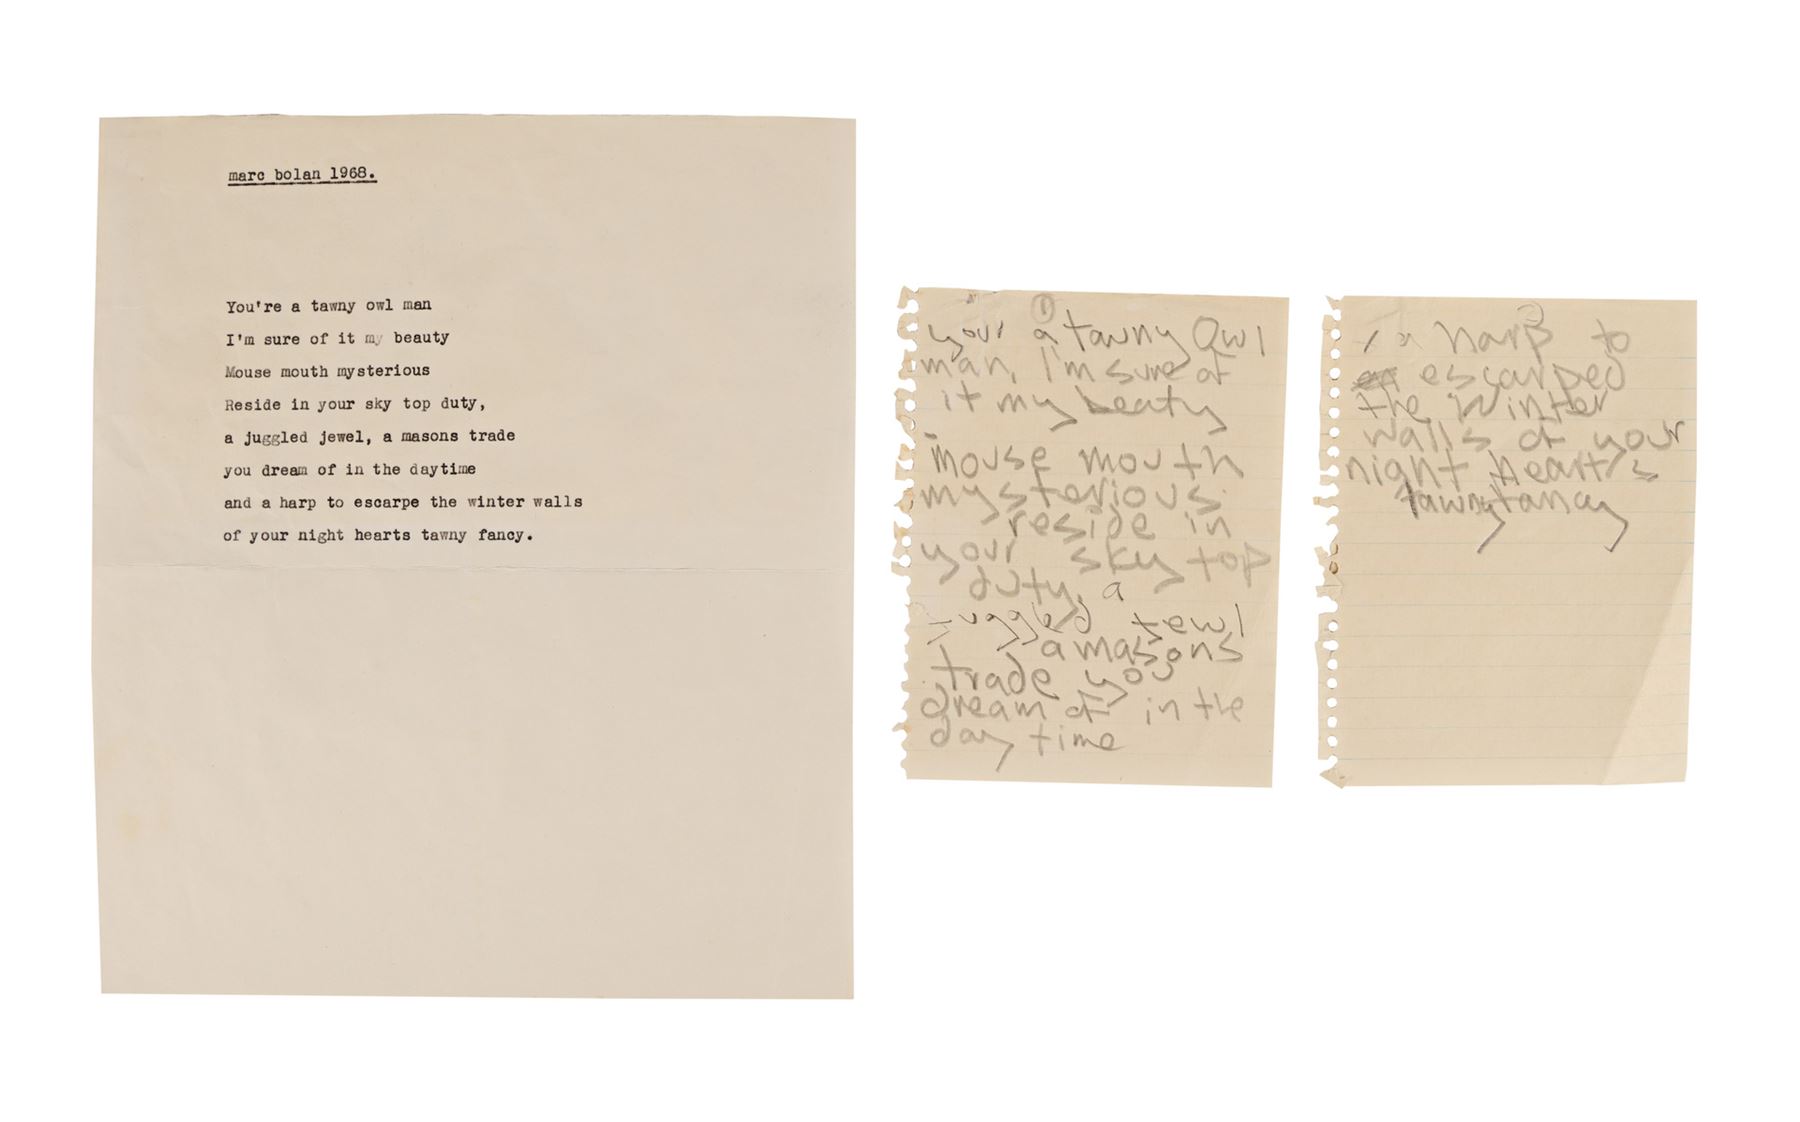 marc bolan 1968.
You're a tawny owl man
I'm sure of it my beauty
Mouse mouth mysterious
Reside in your sky top duty,
a juggled jewel, a masons trade
you dream of in the daytime
and a harp to escarpe the winter walls
of your night hearts tawny fancy.
1
your a tawny Owl
man, I'm sure of
it my beaty
mouse mouth
mysterious.
reside in
your sky top
duty, a
juggled jewl
a masons
trade you
dream of in the
day time
2
a harp to
escarped
the winter
walls of your
night heart's
tawny fancy